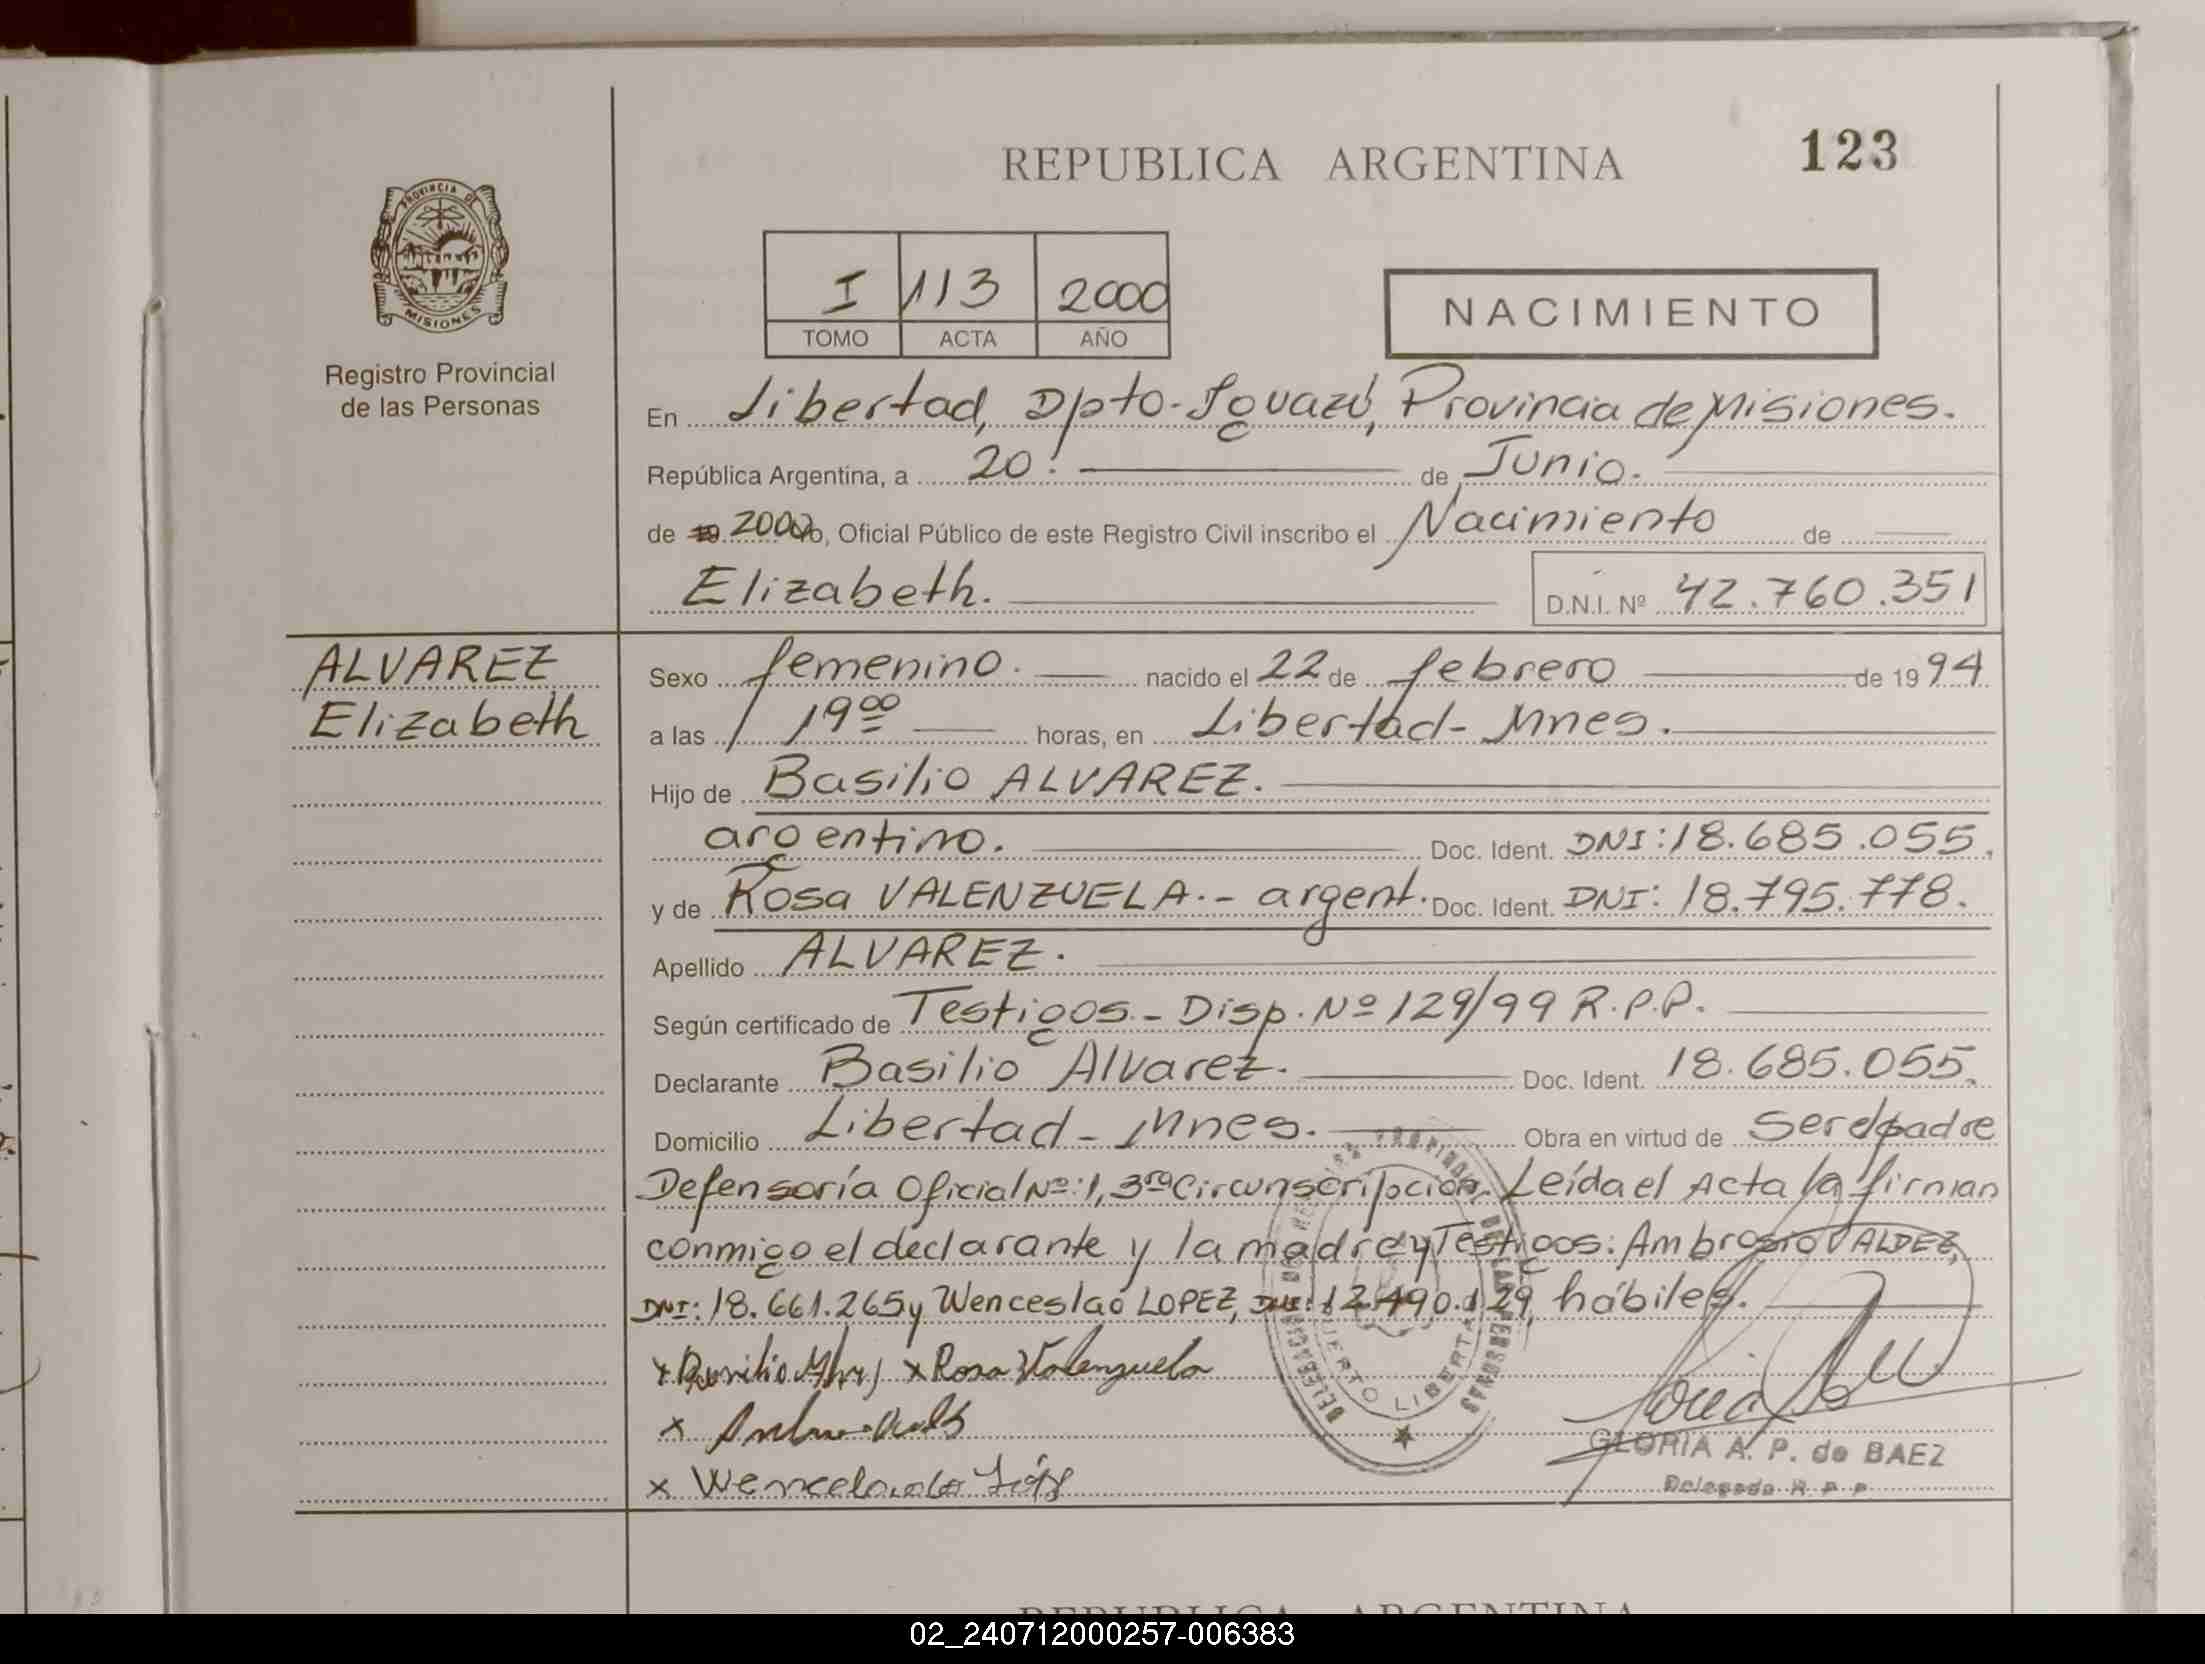 REPUBLICA ARGENTINA
123
PROVINCIA DE
MISIONES
Registro Provincial
de las Personas
I 113 2000
TOMO ACTA AÑO
NACIMIENTO
En Libertad, Dpto. Iguazú, Provincia de Misiones.
República Argentina, a 20. de Junio.
de 19 2000 yo, Oficial Público de este Registro Civil inscribo el Nacimiento de
Elizabeth.
D.N.I. Nº 42.760.351
ALVAREZ
Elizabeth
Sexo femenino. nacido el 22 de febrero de 1994
a las 19 00 horas, en Libertad - Mnes.
Hijo de Basilio ALVAREZ.
argentino. Doc. Ident. DNI: 18.685.055.
y de Rosa VALENZUELA.- argent. Doc. Ident. DNI: 18.795.778.
Apellido ALVAREZ.
Según certificado de Testigos.- Disp. Nº 129/99 R.P.P.
Declarante Basilio Alvarez. Doc. Ident. 18.685.055.
Domicilio Libertad - Mnes. Obra en virtud de ser el padre
Defensoría Oficial Nº: 1, 3ra Circunscripción. Leída el Acta la firman
conmigo el declarante y la madre y Testigos: Ambrosio VALDEZ,
DNI: 18.661.265 y Wenceslao LOPEZ, DNI: 12.490.129, hábiles.
x x Rosa Valenzuela
x
x
DELEGACION DEL REGISTRO PROVINCIAL DE LAS PERSONAS
PUERTO LIBERTAD
GLORIA A. P. de BAEZ
Delegada R. P. P.
REPUBLICA ARGENTINA
02_240712000257-006383